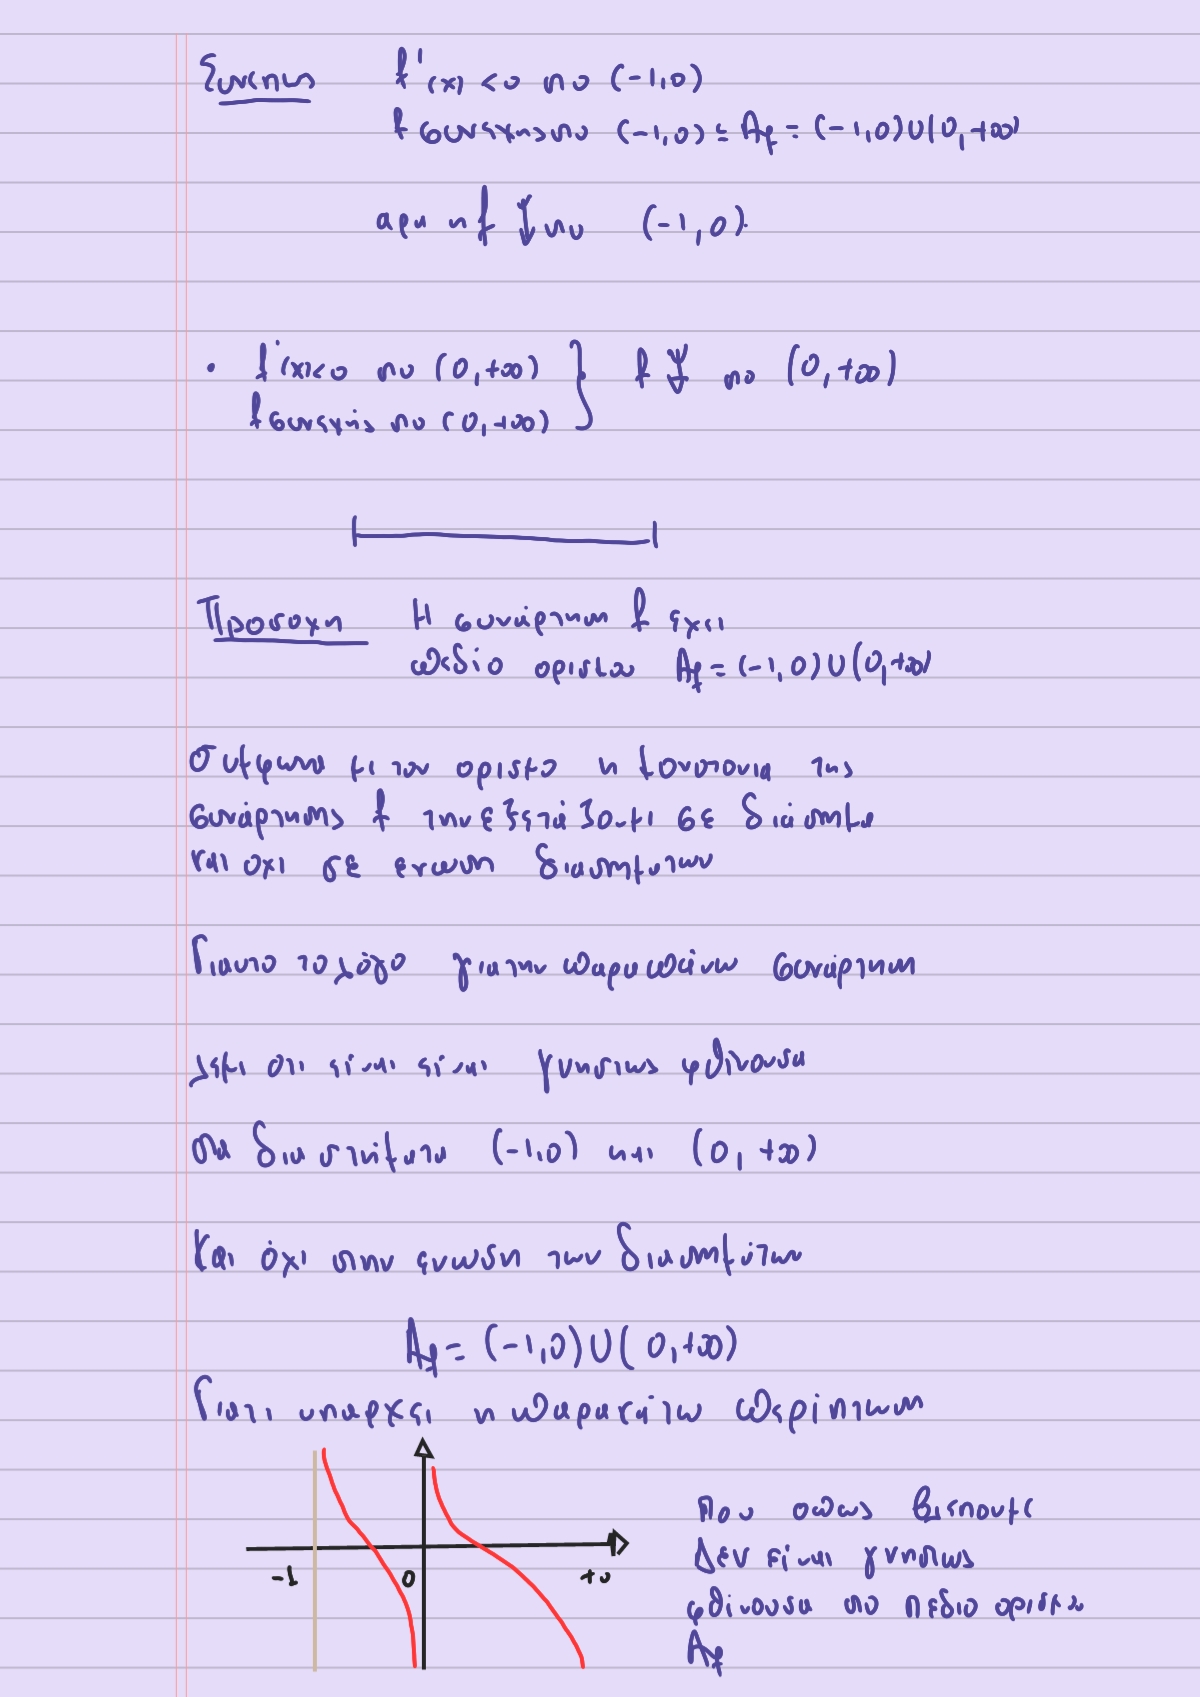 Συνεπως f'(x) <0 στο (-1,0)
f συνεχης στο (-1,0) ⊆ A_f = (-1,0)∪(0,+∞)
αρα η f ↓ στο (-1,0)
• f'(x)<0 στο (0,+∞) } f ↓ στο (0,+∞)
f συνεχής στο (0,+∞)
Προσοχη Η συνάρτηση f εχει
πεδίο ορισμου A_f = (-1,0)∪(0,+∞)
Συμφωνα με τον ορισμο η μονοτονια της
συνάρτησης f την εξετάζουμε σε διάστημα
και οχι σε ενωση διαστηματων
Γιαυτο το λόγο για την παραπάνω συνάρτηση
λεμε οτι είναι είναι γνησιως φθίνουσα
στα διαστήματα (-1,0) και (0,+∞)
και όχι στην ενωση των διαστημάτων
A_f = (-1,0)∪(0,+∞)
Γιατι υπαρχει η παρακάτω περίπτωση
Που οπως βλεπουμε
Δεν είναι γνησιως
-1 0 +∞
φθίνουσα στο πεδιο ορισμου
A_f